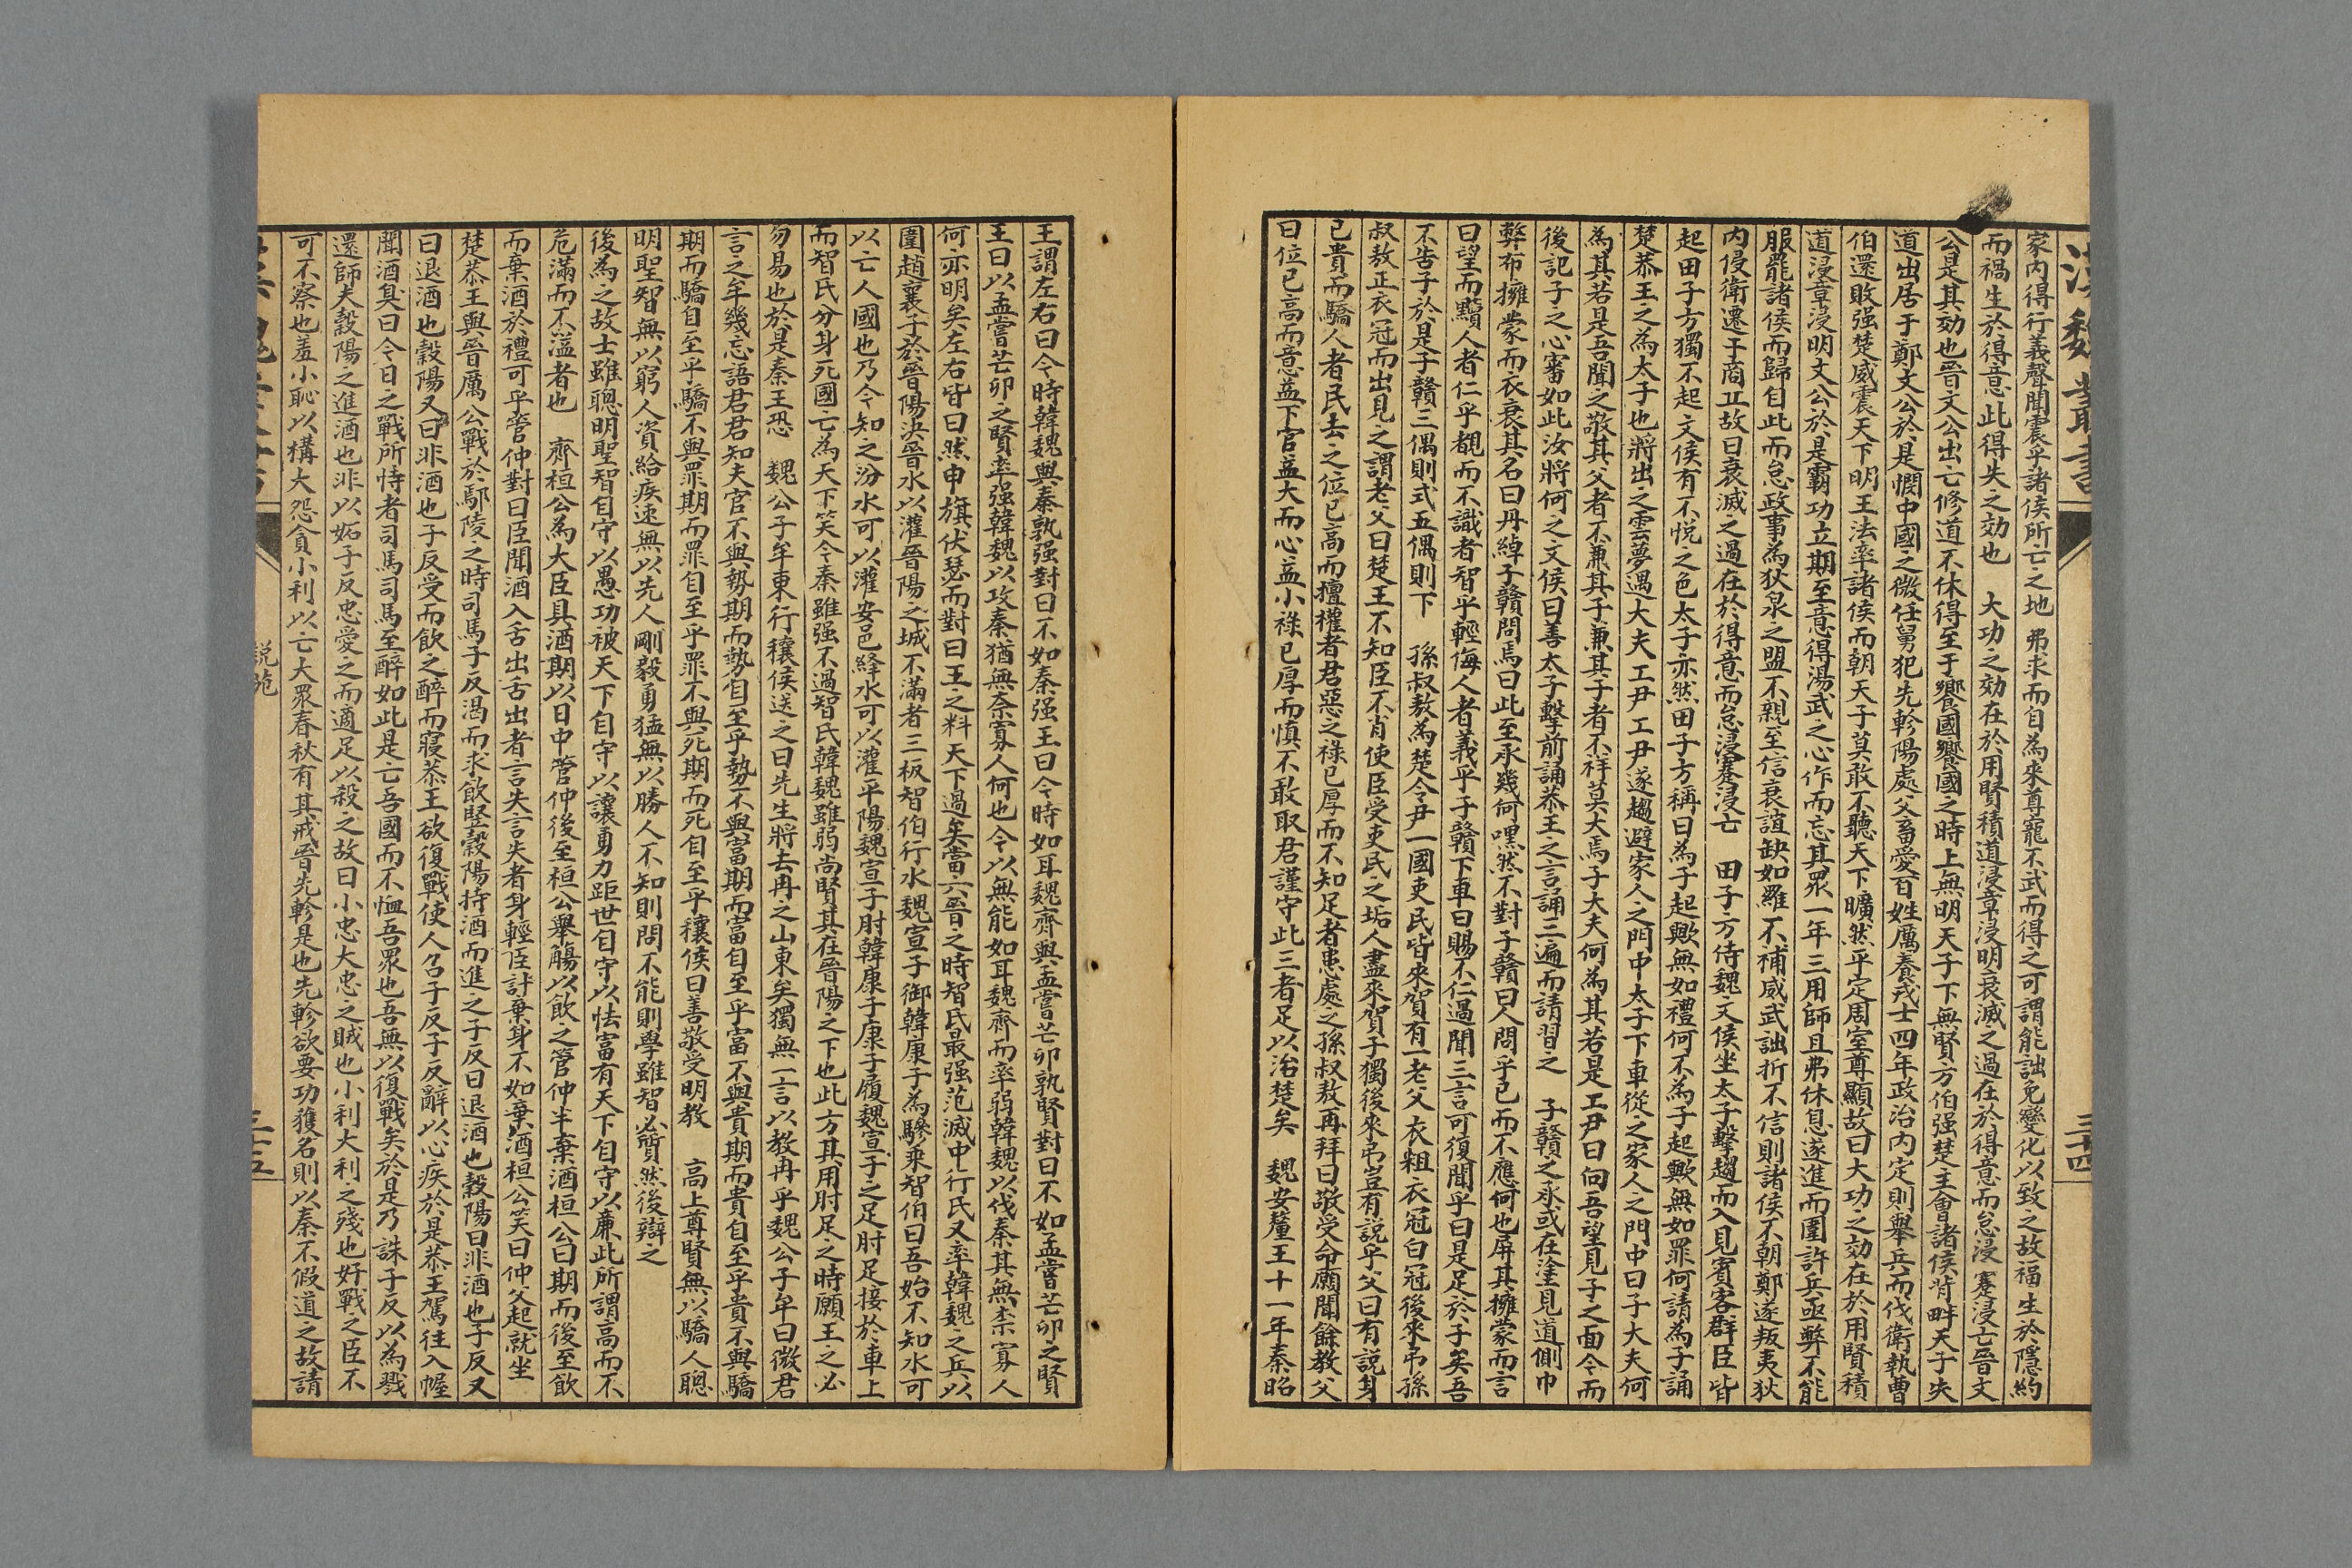 漢魏叢書
三十四
家內得行義聲聞震乎諸侯所亡之地弗求而自為來尊寵不武而得之可謂能詘免變化以致之故福生於隱約
而禍生於得意此得失之効也　大功之効在於用賢積道浸章浸明衰滅之過在於得意而怠浸蹇浸亡晉文
公是其効也晉文公出亡修道不休得至于饗國饗國之時上無明天子下無賢方伯强楚主會諸侯背畔天子失
道出居于鄭文公於是憫中國之微任舅犯先軫陽處父畜愛百姓厲養戎士四年政治內定則舉兵而伐衛執曹
伯還敗强楚威震天下明王法率諸侯而朝天子莫敢不聽天下曠然平定周室尊顯故曰大功之効在於用賢積
道浸章浸明文公於是霸功立期至意得湯武之心作而忘其眾一年三用師且弗休息遂進而圍許兵亟弊不能
服罷諸侯而歸自此而怠政事為狄泉之盟不親至信衰誼缺如羅不補威武詘折不信則諸侯不朝鄭遂叛夷狄
內侵衛遷于商丘故曰衰滅之過在於得意而怠浸蹇浸亡　田子方侍魏文侯坐太子擊趨而入見賓客群臣皆
起田子方獨不起文侯有不悅之色太子亦然田子方稱曰為子起歟無如禮何不為子起歟無如罪何請為子誦
楚恭王之為太子也將出之雲夢遇大夫工尹工尹遂趨避家人之門中太子下車從之家人之門中曰子大夫何
為其若是吾聞之敬其父者不兼其子兼其子者不祥莫大焉子大夫何為其若是工尹曰向吾望見子之面今而
後記子之心審如此汝將何之文侯曰善太子擊前誦恭王之言誦三遍而請習之　子贛之承或在塗見道側巾
弊布擁蒙而衣衰其名曰丹綽子贛問焉曰此至承幾何嘿然不對子贛曰人問乎已而不應何也屏其擁蒙而言
曰望而黷人者仁乎覩而不識者智乎輕侮人者義乎子贛下車曰賜不仁過聞三言可復聞乎曰是足於子矣吾
不告子於是子贛三偶則式五偶則下　孫叔敖為楚令尹一國吏民皆來賀有一老父衣粗衣冠白冠後來弔孫
叔敖正衣冠而出見之謂老父曰楚王不知臣不肖使臣受吏民之垢人盡來賀子獨後來弔豈有說乎父曰有說身
已貴而驕人者民去之位已高而擅權者君惡之祿已厚而不知足者患處之孫叔敖再拜曰敬受命願聞餘教父
曰位已高而意益下官益大而心益小祿已厚而慎不敢取君謹守此三者足以治楚矣　魏安釐王十一年秦昭
王謂左右曰今時韓魏與秦孰强對曰不如秦强王曰今時如耳魏齊與孟嘗芒卯孰賢對曰不如孟嘗芒卯之賢
王曰以孟嘗芒卯之賢率强韓魏以攻秦猶無柰寡人何也今以無能如耳魏齊而率弱韓魏以伐秦其無柰寡人
何亦明矣左右皆曰然申旗伏瑟而對曰王之料天下過矣當六晉之時智氏最强范滅中行氏又率韓魏之兵以
圍趙襄子於晉陽決晉水以灌晉陽之城不滿者三板智伯行水魏宣子御韓康子為驂乘智伯曰吾始不知水可
以亡人國也乃今知之汾水可以灌安邑絳水可以灌平陽魏宣子肘韓康子康子履魏宣子之足肘足接於車上
而智氏分身死國亡為天下笑今秦雖强不過智氏韓魏雖弱尚賢其在晉陽之下也此方其用肘足之時願王之必
勿易也於是秦王恐　魏公子牟東行穰侯送之曰先生將去冉之山東矣獨無一言以教冉乎魏公子牟曰微君
言之牟幾忘語君君知夫官不與勢期而勢自至乎勢不與富期而富自至乎富不與貴期而貴自至乎貴不與驕
期而驕自至乎驕不與罪期而罪自至乎罪不與死期而死自至乎穰侯曰善敬受明教　高上尊賢無以驕人聰
明聖智無以窮人資給疾速無以先人剛毅勇猛無以勝人不知則問不能則學雖智必質然後辯之
後為之故士雖聰明聖智自守以愚功被天下自守以讓勇力距世自守以怯富有天下自守以廉此所謂高而不
危滿而不溢者也　齊桓公為大臣具酒期以日中管仲後至桓公舉觴以飲之管仲半棄酒桓公曰期而後至飲
而棄酒於禮可乎管仲對曰臣聞酒入舌出舌出者言失言失者身輕臣計棄身不如棄酒桓公笑曰仲父起就坐
楚恭王與晉厲公戰於鄢陵之時司馬子反渴而求飲豎穀陽持酒而進之子反曰退酒也穀陽曰非酒也子反又
曰退酒也穀陽又曰非酒也子反受而飲之醉而寢恭王欲復戰使人召子反子反辭以心疾於是恭王駕往入幄
聞酒臭曰今日之戰所恃者司馬司馬至醉如此是亡吾國而不恤吾眾也吾無以復戰矣於是乃誅子反以為戮
還師夫穀陽之進酒也非以妬子反忠愛之而適足以殺之故曰小忠大忠之賊也小利大利之殘也好戰之臣不
可不察也羞小恥以構大怨貪小利以亡大眾春秋有其戒晉先軫是也先軫欲要功獲名則以秦不假道之故請
說苑
三十五